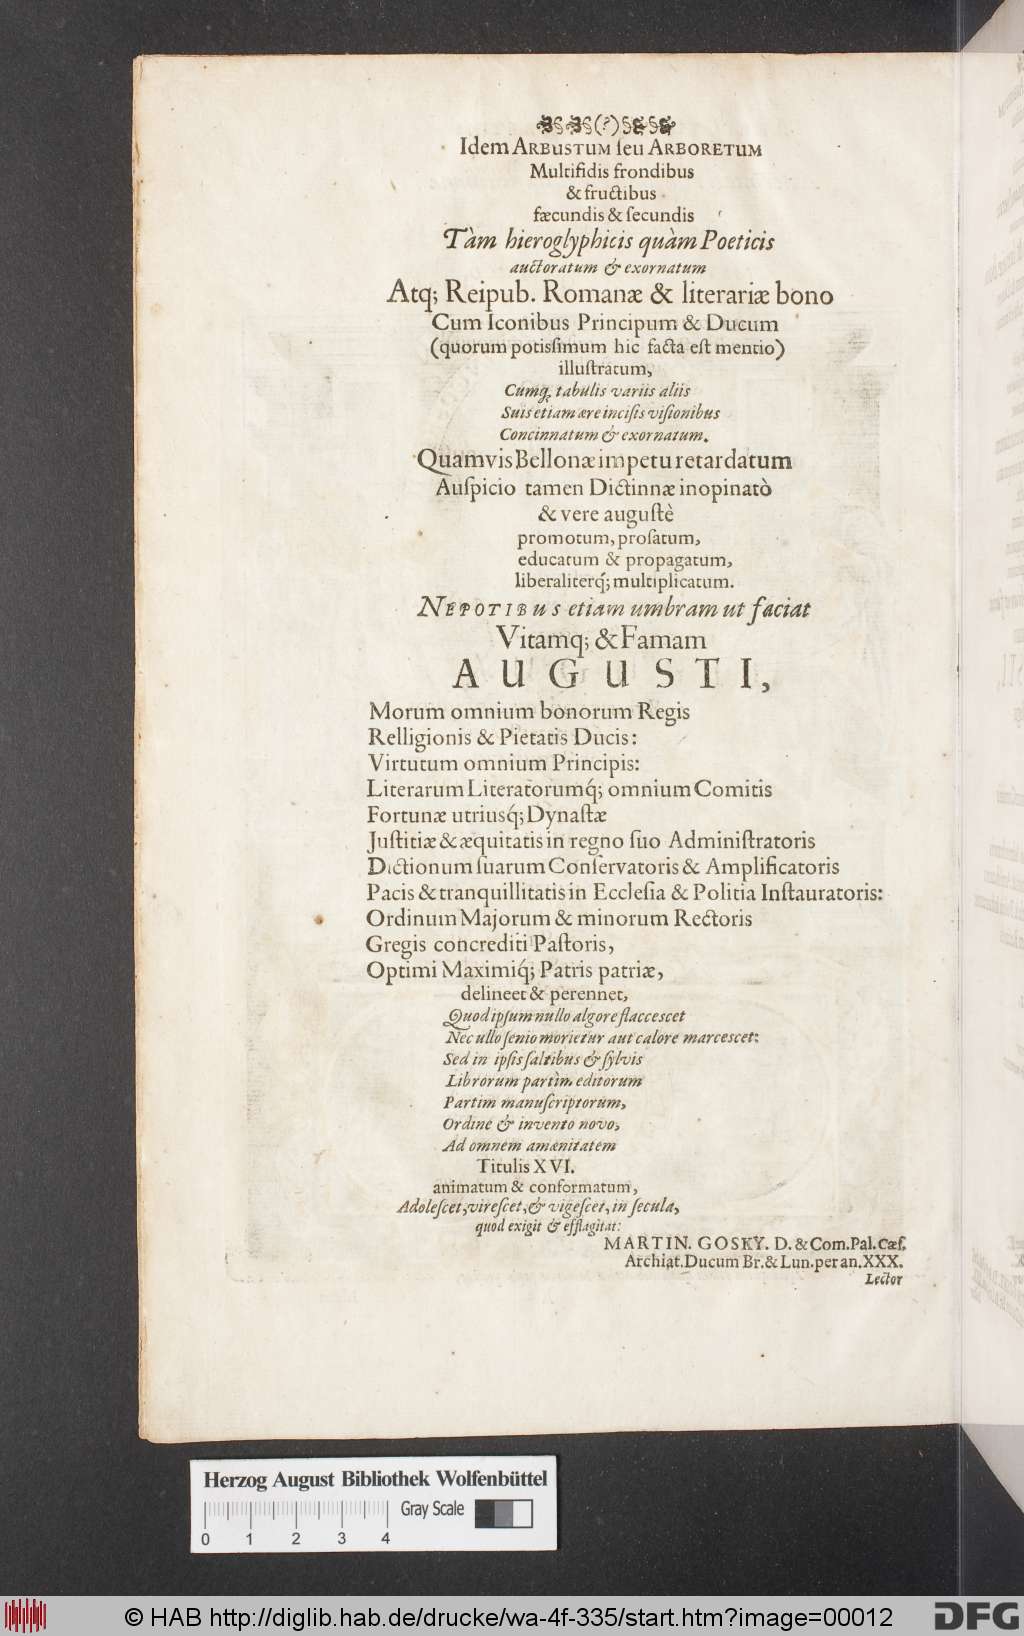 (?)
Idem ARBUSTUM ſeu ARBORETUM
Multifidis frondibus
& fructibus
fæcundis & ſecundis
Tàm hieroglyphicis quàm Poeticis
auctoratum & exornatum
Atq; Reipub. Romanæ & literariæ bono
Cum Iconibus Principum & Ducum
(quorum potisſimum hic facta eſt mentio)
illuſtratum,
Cumq; tabulis variis aliis
Suis etiam ære inciſis viſionibus
Concinnatum & exornatum.
Quamvis Bellonæ impetu retardatum
Auſpicio tamen Dictinnæ inopinatò
& vere auguſtè
promotum, proſatum,
educatum & propagatum,
liberaliterq́; multiplicatum.
NEPOTIBUS etiam umbram ut faciat
Vitamq; & Famam
AUGUSTI,
Morum omnium bonorum Regis
Relligionis & Pietatis Ducis:
Virtutum omnium Principis:
Literarum Literatorumq́; omnium Comitis
Fortunæ utriusq́; Dynaſtæ
Juſtitiæ & æquitatis in regno ſuo Adminiſtratoris
Dictionum ſuarum Conſervatoris & Amplificatoris
Pacis & tranquillitatis in Eccleſia & Politia Inſtauratoris:
Ordinum Majorum & minorum Rectoris
Gregis concrediti Paſtoris,
Optimi Maximiq́; Patris patriæ,
delineet & perennet,
Quod ipſum nullo algore flaccescet
Nec ullo ſenio morietur aut calore marcescet:
Sed in ipſis ſaltibus & ſylvis
Librorum partìm editorum
Partim manuſcriptorum,
Ordine & invento novo,
Ad omnem amænitatem
Titulis XVI.
animatum & conformatum,
Adoleſcet, vireſcet, & vigeſcet, in ſecula,
quod exigit & efflagitat:
MARTIN. GOSKY. D. & Com. Pal. Cæſ.
Archiat. Ducum Br. & Lun. per an. XXX.
Lector
Herzog August Bibliothek Wolfenbüttel
Gray Scale
0 1 2 3 4
© HAB http://diglib.hab.de/drucke/wa-4f-335/start.htm?image=00012
DFG